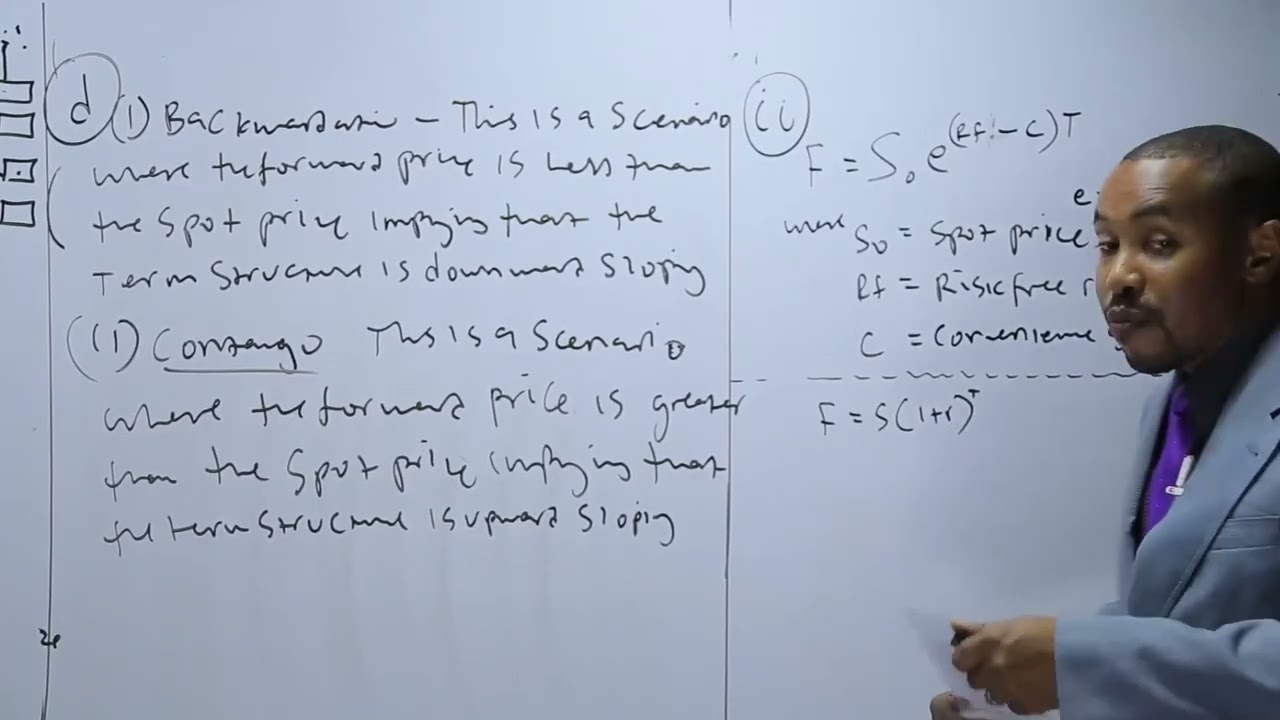 d (1) Backwardation - This is a Scenario
where the forward price is Less than
the Spot price implying that the
Term Structure is downward Sloping
(1) Contango This is a Scenario
where the forward price is greater
than the Spot price implying that
the term structure is upward Sloping
ii
F = S₀ e^(Rf - C)T
where S₀ = Spot price
Rf = Risk free
C = Convenience
F = S(1+r)^T